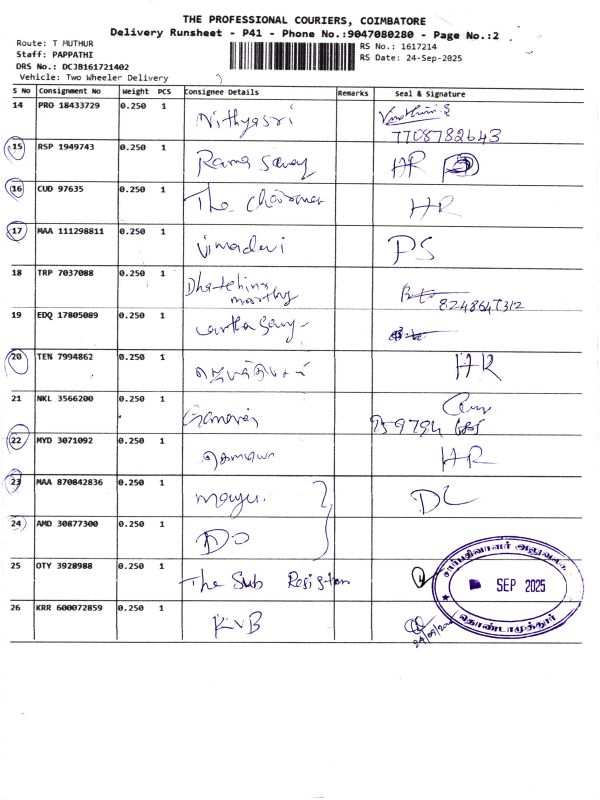 THE PROFESSIONAL COURIERS, COIMBATORE
Delivery Runsheet - P41 - Phone No.:9047080280 - Page No.:2
Route: T MUTHUR
Staff: PAPPATHI
DRS No.: DCJB161721402
Vehicle: Two Wheeler Delivery
RS No.: 1617214
RS Date: 24-Sep-2025
S No Consignment No Weight PCS Consignee Details Remarks Seal & Signature
14 PRO 18433729 0.250 1 Nithyasri
7708782643
15 RSP 1949743 0.250 1 HR
16 CUD 97635 0.250 1 The Chairman HR
17 MAA 111298811 0.250 1 Vimadevi PS
18 TRP 7037088 0.250 1
19 EDQ 17805089 0.250 1
20 TEN 7994862 0.250 1 HR
21 NKL 3566200 0.250 1
22 MYD 3071092 0.250 1 HR
23 MAA 870842836 0.250 1 DC
24 AMD 30877300 0.250 1 DO
25 OTY 3928988 0.250 1 The Sub
சார்பதிவாளர் அலுவலகம்
SEP 2025
தொண்டாமுத்தூர்
26 KRR 600072859 0.250 1 KVB